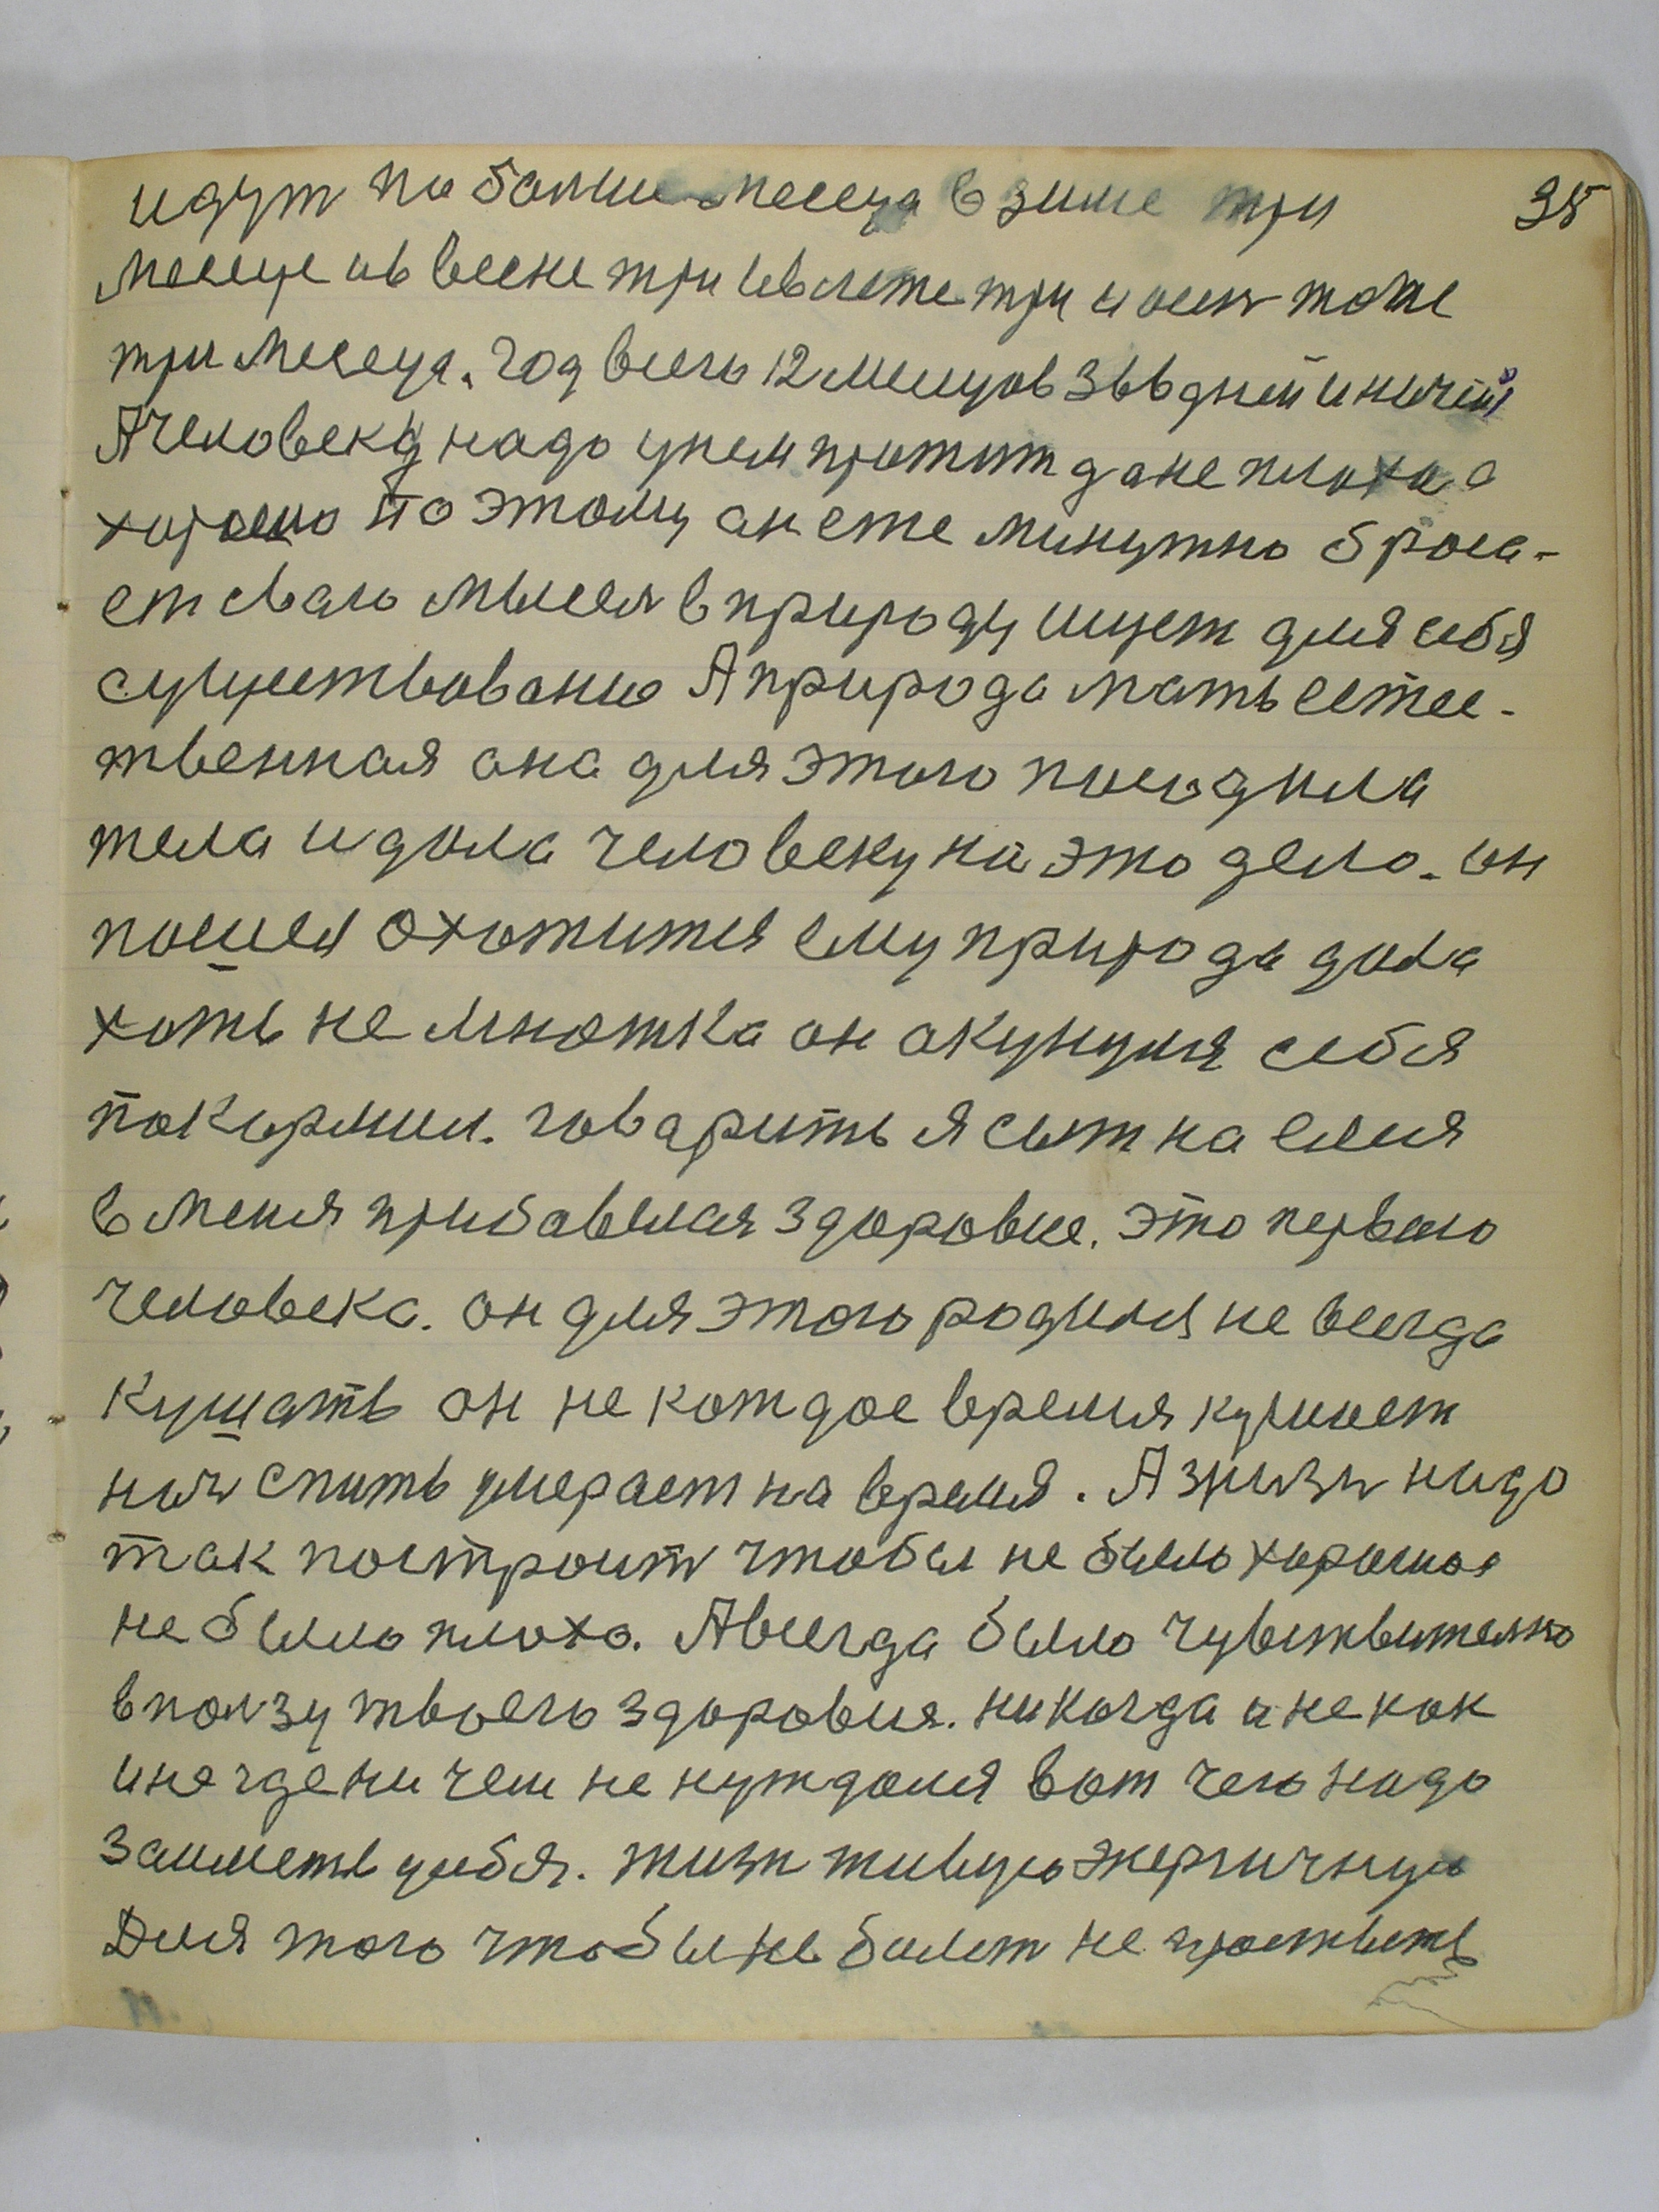 идут по больше месеца в зиме три 35
месеце ив весне три ивлете три и осен тоже
три месеца. Год всего 12 месецов 366 дней и ночей
Ачеловеку надо унем прожит да не плоха а
хорошо по этому он еже минутно броса-
ет сваю мысел в природу ищет для себя
существованию А природа мать естес-
твенная она для этого посодила
тела и дала человеку на это дело. он
пошел охотится ему природа дала
хоть не множка он окунулся себя
покормил. говарить я сыт на елся
в меня прибавелася здоровие. это первого
человека. он для этого родился не всегда
кушать он не каждое время кушает
ноч спить умерает на время. А жизн надо
так построит чтобы не было хорошое
не было плохо. Авсегда было чувствително
в ползу твоего здоровия. никогда и не как
и не где ни чем не нуждался вот чего надо
заиметь усебя. жизн живую энергичную
Для того чтобы не болет не простыть